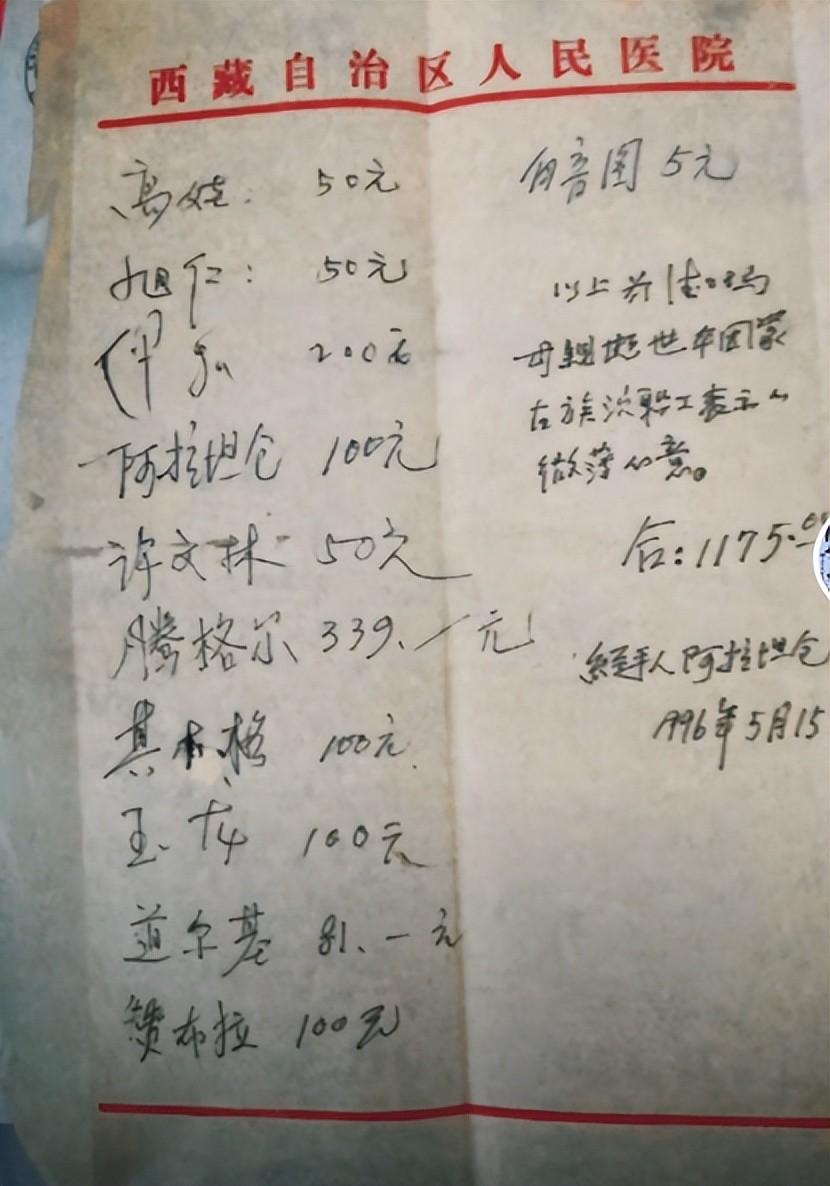 西藏自治区人民医院
高娃: 50元
旭仁: 50元
伊 200元
阿拉坦仓 100元
许文林 50元
腾格尔 339.一元
其木格 100元
玉龙 100元
道尔基 81.一元
赞布拉 100元
白音图 5元
以上为德玛
母親逝世本团蒙
古族演職工表示的
微薄心意。
合:1175.00
経手人阿拉坦仓
1996年5月15